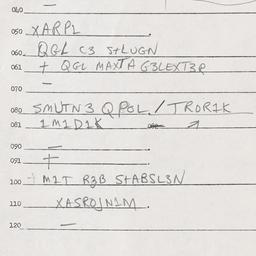 040 —
050 XARPL
060 QGL C3 S+LUGN
061 + QGL MAXTA G3LEXT3R
070 —
080 SMUTN3 QPGL. / TROR1K
081 1M1D1K
090 —
091 +
100 + M1T R3B S+ABSL3N
110 XASROJN1M.
120 —